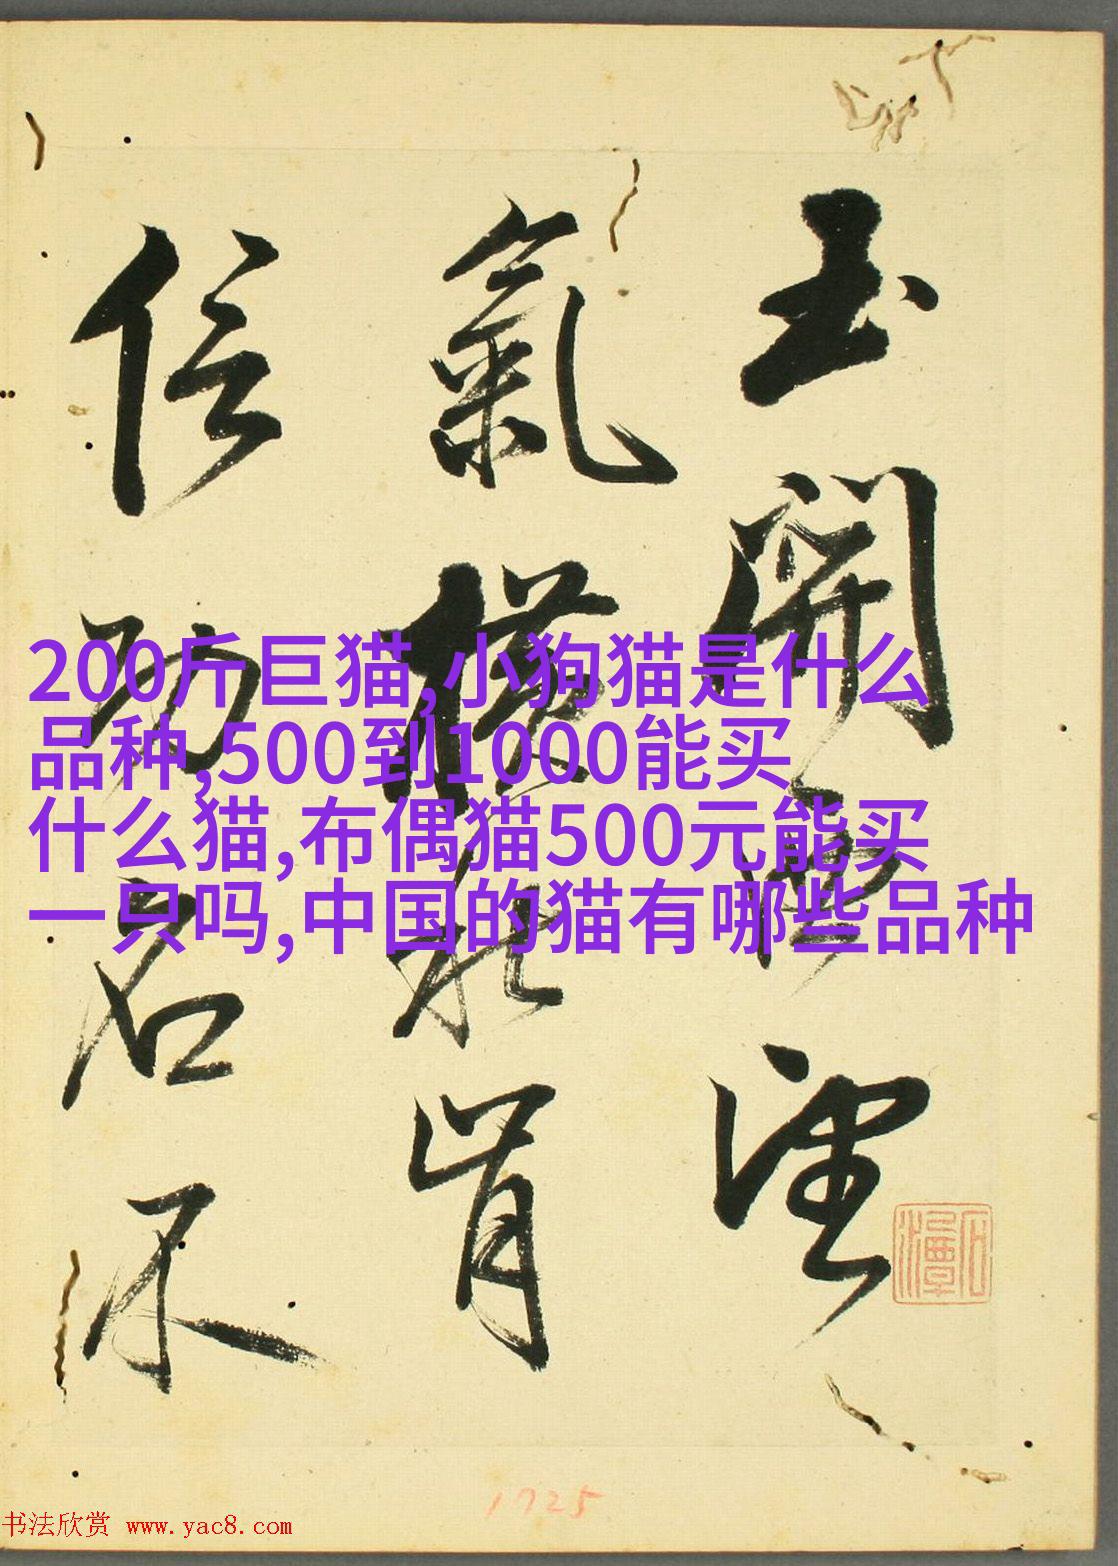 玉開雲溼
氣橫秋肯
信功名不
200斤巨猫,小狗猫是什么
品种,500到1000能买
什么猫,布偶猫500元能买
一只吗,中国的猫有哪些品种
1725
书法欣赏 www.yac8.com